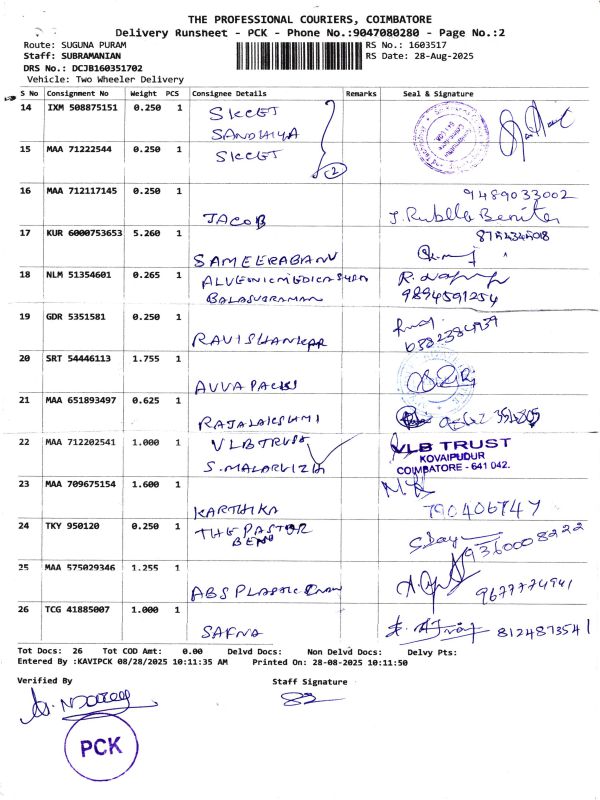 THE PROFESSIONAL COURIERS, COIMBATORE
Delivery Runsheet - PCK - Phone No.:9047080280 - Page No.:2
Route: SUGUNA PURAM RS No.: 1603517
Staff: SUBRAMANIAN RS Date: 28-Aug-2025
DRS No.: DCJB160351702
Vehicle: Two Wheeler Delivery
S No Consignment No Weight PCS Consignee Details Remarks Seal & Signature
14 IXM 508875151 0.250 1 SKCET
SANDHIYA
15 MAA 71222544 0.250 1 SKCET
2
16 MAA 712117145 0.250 1 9489033002
JACOB J. Rublla Benita
17 KUR 6000753653 5.260 1
SAMEERABANU
18 NLM 51354601 0.265 1
BALASUBRAMAN 9894591254
19 GDR 5351581 0.250 1
RAVISHANKAR
20 SRT 54446113 1.755 1
AVVA PACKS
21 MAA 651893497 0.625 1
RAJALAKSHMI
22 MAA 712202541 1.000 1 VLB TRUST VLB TRUST
KOVAIPUDUR
S. MALARVIZHI COIMBATORE - 641 042.
23 MAA 709675154 1.600 1
KARTHIKA 790406747
24 TKY 950120 0.250 1 THE PASTOR
BEN 9360008222
25 MAA 575029346 1.255 1
ABS PLASTIC 9677774941
26 TCG 41885007 1.000 1
SAFNA 8124873541
Tot Docs: 26 Tot COD Amt: 0.00 Delvd Docs: Non Delvd Docs: Delvy Pts:
Entered By :KAVIPCK 08/28/2025 10:11:35 AM Printed On: 28-08-2025 10:11:50
Verified By Staff Signature
PCK